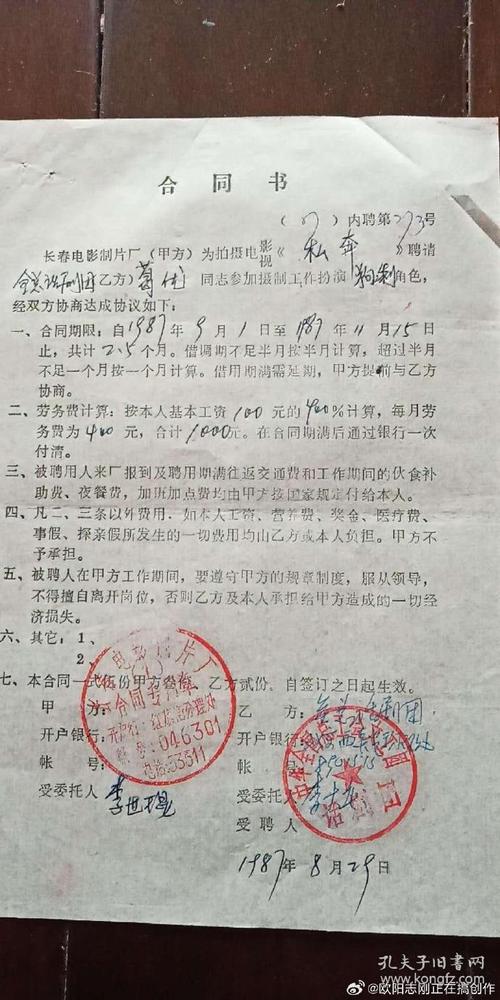 合同书
(87)内聘第273号
长春电影制片厂(甲方)为拍摄电影视《私奔》聘请
全总话剧团(乙方)葛优同志参加摄制工作扮演狗剩角色,
经双方协商达成协议如下:
一、合同期限:自1987年9月1日至1987年11月15日
止,共计2.5个月。借调期不足半月按半月计算,超过半月
不足一个月按一个月计算。借用期满需延期,甲方提前与乙方
协商。
二、劳务费计算:按本人基本工资100元的400%计算,每月劳
务费为400元,合计1000元。在合同期满后通过银行一次
付清。
三、被聘用人来厂报到及聘用期满往返交通费和工作期间的伙食补
助费、夜餐费,加班加点费均由甲方按国家规定付给本人。
四、凡二、三条以外费用,如本人工资、营养费、奖金、医疗费、
事假、探亲假所发生的一切费用均由乙方或本人负担。甲方不
予承担。
五、被聘人在甲方工作期间,要遵守甲方的规章制度,服从领导,
不得擅自离开岗位,否则乙方及本人承担给甲方造成的一切经
济损失。
六、其它:1、
2、
七、本合同一式伍份甲方叁份,乙方贰份,自签订之日起生效。
甲方:
乙方:全总话剧团
开户银行:
开户银行:
帐号:
帐号:
受委托人 李世琨
受委托人
受聘人
1987年8月29日
电影制片厂
合同专用章
046301
电话:53311
话剧团
孔夫子旧书网
@欧阳志刚正在搞创作